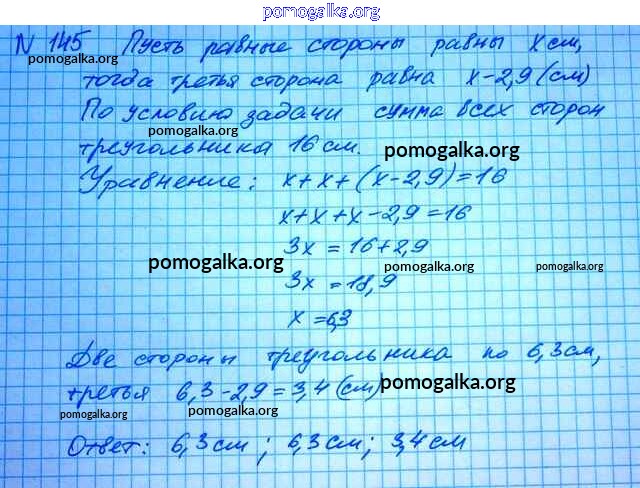 pomogalka.org
N 145 Пусть равные стороны равны x см,
pomogalka.org
тогда третья сторона равна x-2,9 (см)
По условию задачи сумма всех сторон
pomogalka.org
треугольника 16 см.
pomogalka.org
Уравнение: x+x+(x-2,9)=16
x+x+x-2,9=16
3x = 16+2,9
pomogalka.org pomogalka.org pomogalka.org
3x = 18,9
x = 6,3
Две стороны треугольника по 6,3 см,
третья 6,3-2,9=3,4 (см)
pomogalka.org
pomogalka.org pomogalka.org
Ответ: 6,3 см; 6,3 см; 3,4 см